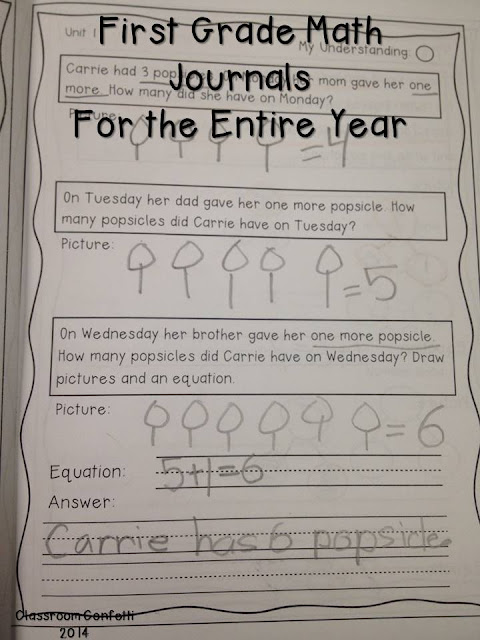 First Grade Math
Journals
For the Entire Year
Unit 1
My Understanding:
Carrie had 3 mom gave her one
more. How many did she have on Monday?
Picture:
=4
On Tuesday her dad gave her one more popsicle. How
many popsicles did Carrie have on Tuesday?
Picture:
=5
On Wednesday her brother gave her one more popsicle.
How many popsicles did Carrie have on Wednesday? Draw
pictures and an equation.
Picture:
=6
Equation:
5+1=6
Answer:
Carrie has 6 popsicle.
Classroom Confetti
2014